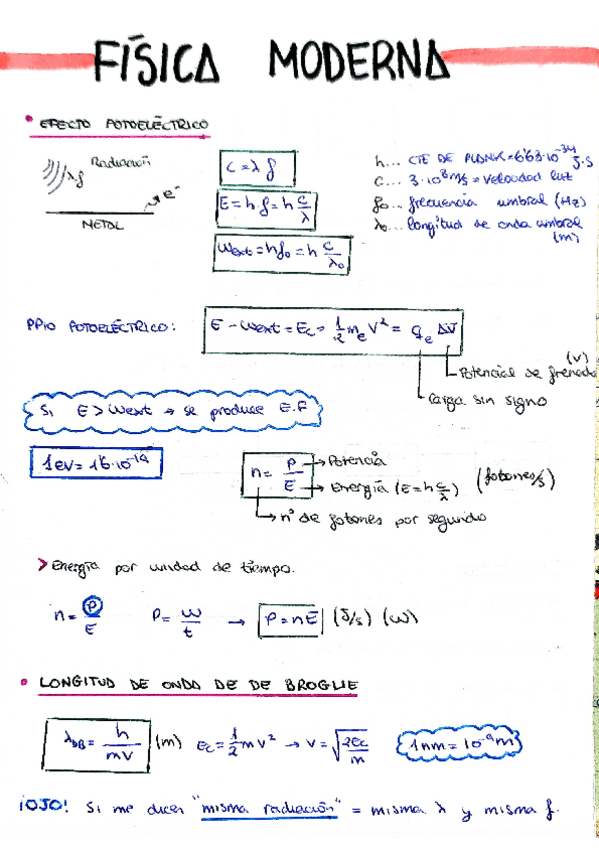 FÍSICA MODERNA
• EFECTO FOTOELÉCTRICO
Radiación
λ, f
e⁻
METAL
C = λ f
E = h·f = h c/λ
Wext = hf₀ = h c/λ₀
h... CTE DE PLANK = 6'63·10⁻³⁴ J·S
C... 3·10⁸ m/s = velocidad luz
f₀... frecuencia umbral (Hz)
λ₀... longitud de onda umbral (m)
PPIO FOTOELÉCTRICO:
E - Wext = Ec = 1/2 me V² = qe ΔV
Potencial de frenado (V)
Carga sin signo
Si E > Wext → se produce E.F
1eV = 1'6·10⁻¹⁹
n = P/E
→ Potencia
→ Energía (E = h c/λ) (fotones/s)
→ nº de fotones por segundo
> Energía por unidad de tiempo.
n = P/E P = W/t → P = nE (J/s) (W)
• LONGITUD DE ONDA DE DE BROGLIE
λDB = h/mv (m) Ec = 1/2 m v² → v = √2Ec/m 1nm = 10⁻⁹m
¡OJO! Si me dicen "misma radiación" = misma λ y misma f.